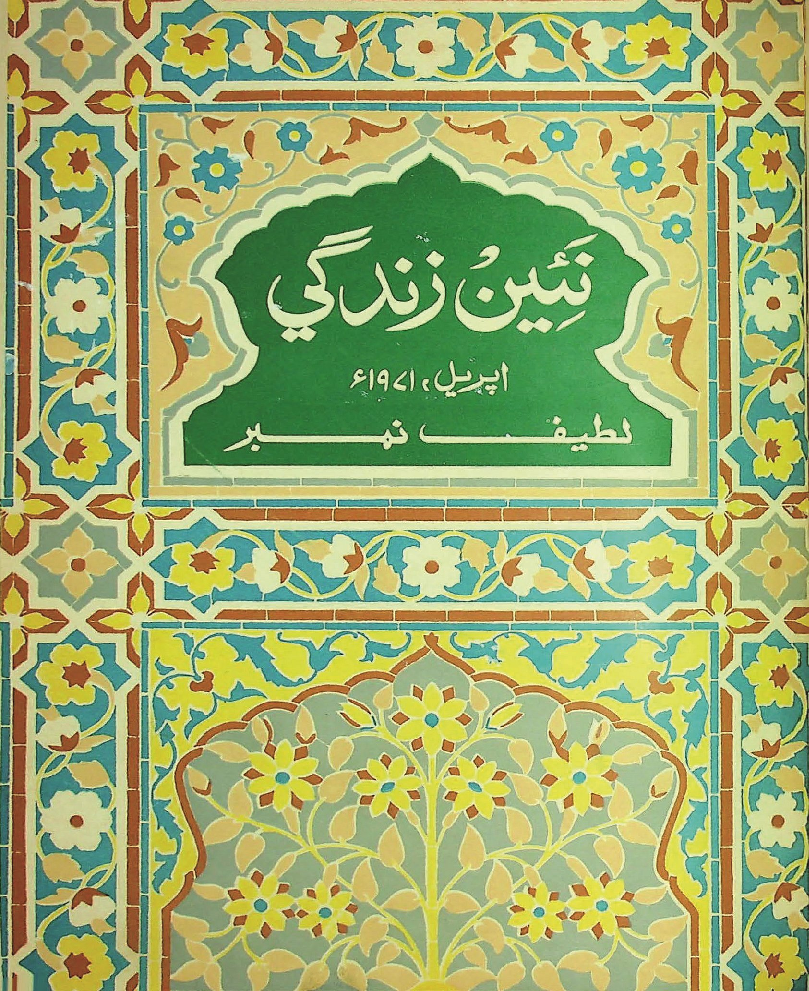 نَئِينْ زندگي
اپريل، ۱۹۷۱ء
لطيف نمبر